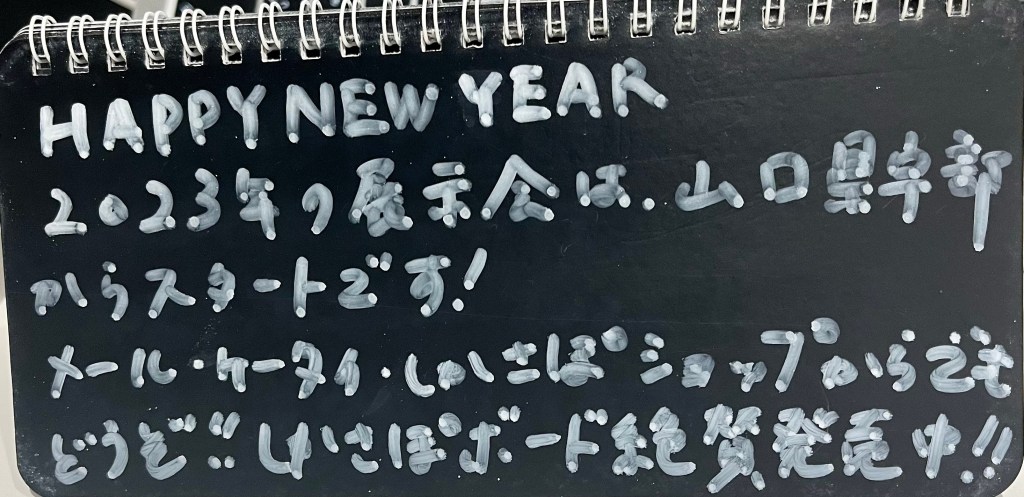 HAPPY NEW YEAR
2023年の展示会は、山口県宇部
からスタートです!
メール・ケータイ・しいさぽショップからでも
どうぞ!! しいさぽボード絶賛発売中!!